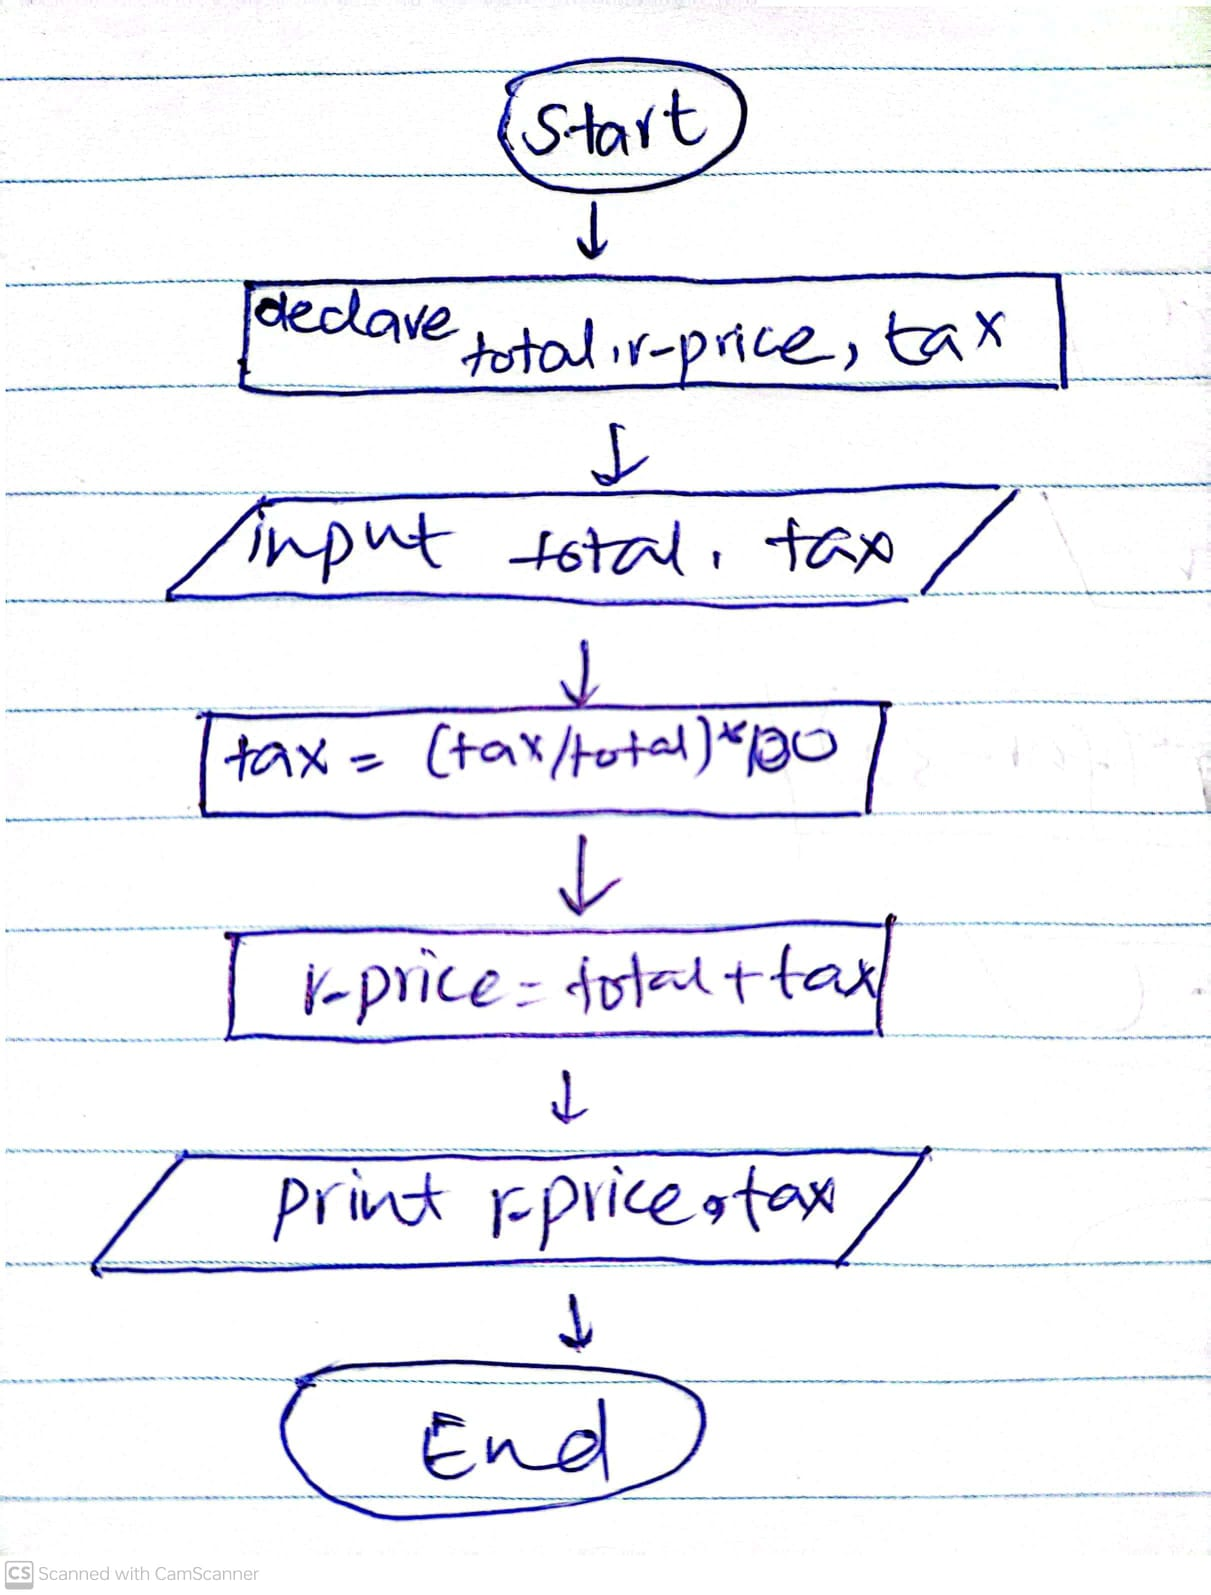 Start
declare total, r-price, tax
input total, tax
tax = (tax/total)*100
r-price = total + tax
print r-price, tax
End
CS Scanned with CamScanner